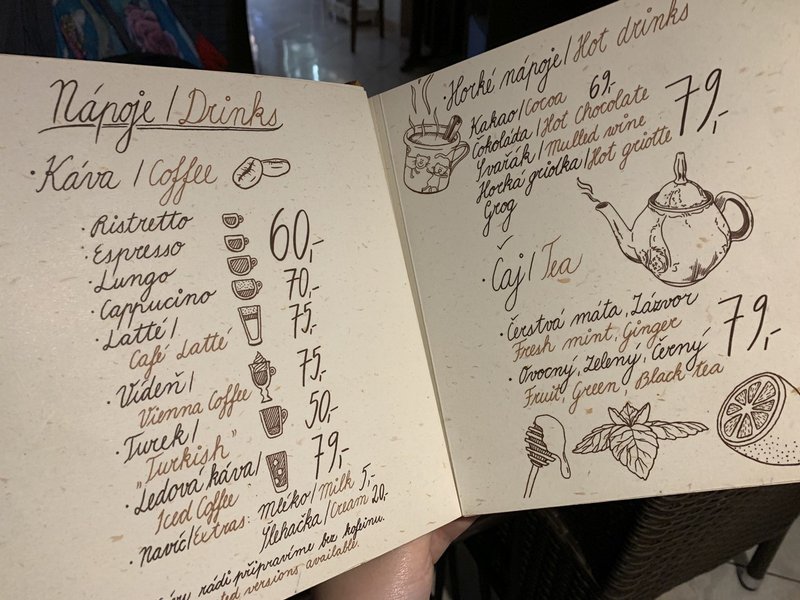 Nápoje / Drinks
• Káva / Coffee
• Ristretto
• Espresso
• Lungo
60,-
• Cappucino 70,-
• Latté / 75,-
Café Latté
• Vídeň / 75,-
Vienna Coffee
• Turek / 50,-
"Turkish"
• Ledová káva / 79,-
Iced Coffee
• Navíc / Extras: mléko / Milk 5,-
Šlehačka / Cream 20,-
rádi připravíme bez kofeinu.
versions available.
• Horké nápoje / Hot drinks
Kakao / Cocoa 69,-
Čokoláda / Hot Chocolate
Svařák / Mulled wine
Horká griotka / Hot griotte
Grog
79,-
• Čaj / Tea
• Čerstvá máta, Zázvor
Fresh mint, Ginger
• Ovocný, Zelený, Černý
Fruit, Green, Black tea
79,-